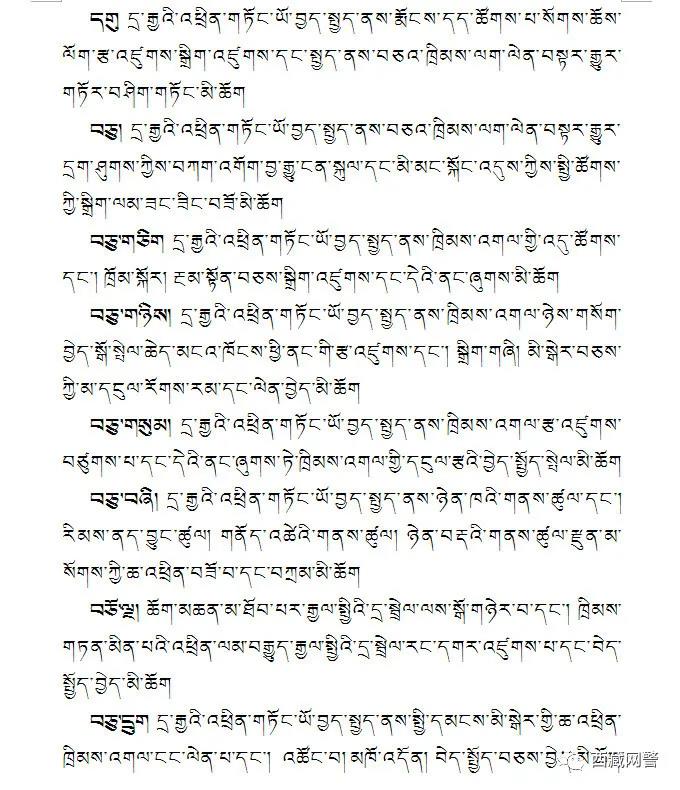 དགུ དྲ་རྒྱའི་འཕྲིན་གཏོང་ཡོ་བྱད་སྤྱད་ནས་རྨོངས་དད་ཚོགས་པ་སོགས་ཆོས་
ལོག་རྩ་འཛུགས་སྒྲིག་འཛུགས་དང་སྤྱད་ནས་བཅའ་ཁྲིམས་ལག་ལེན་བསྟར་རྒྱུར་
གཏོར་བཤིག་གཏོང་མི་ཆོག
བཅུ། དྲ་རྒྱའི་འཕྲིན་གཏོང་ཡོ་བྱད་སྤྱད་ནས་བཅའ་ཁྲིམས་ལག་ལེན་བསྟར་རྒྱུར་
དྲག་ཤུགས་ཀྱིས་བཀག་འགོག་བྱ་རྒྱུ་ངན་སྐུལ་དང་མི་མང་སྐོང་འདུས་ཀྱིས་སྤྱི་ཚོགས་
ཀྱི་སྒྲིག་ལམ་ཟང་ཟིང་བཟོ་མི་ཆོག
བཅུ་གཅིག དྲ་རྒྱའི་འཕྲིན་གཏོང་ཡོ་བྱད་སྤྱད་ནས་ཁྲིམས་འགལ་གྱི་འདུ་ཚོགས་
དང་། ཁྲོམ་སྐོར། ངོམ་སྟོན་བཅས་སྒྲིག་འཛུགས་དང་དེའི་ནང་ཞུགས་མི་ཆོག
བཅུ་གཉིས། དྲ་རྒྱའི་འཕྲིན་གཏོང་ཡོ་བྱད་སྤྱད་ནས་ཁྲིམས་འགལ་ཉེས་གསོག་
བྱེད་སྒོ་སྤེལ་ཆེད་མངའ་ཁོངས་ཕྱི་ནང་གི་རྩ་འཛུགས་དང་། སྒྲིག་གཞི། མི་སྒེར་བཅས་
ཀྱི་མ་དངུལ་རོགས་རམ་དང་ལེན་བྱེད་མི་ཆོག
བཅུ་གསུམ། དྲ་རྒྱའི་འཕྲིན་གཏོང་ཡོ་བྱད་སྤྱད་ནས་ཁྲིམས་འགལ་རྩ་འཛུགས་
བཙུགས་པ་དང་དེའི་ནང་ཞུགས་ཏེ་ཁྲིམས་འགལ་གྱི་དངུལ་རྩའི་བྱེད་སྤྱོད་སྤེལ་མི་ཆོག
བཅུ་བཞི། དྲ་རྒྱའི་འཕྲིན་གཏོང་ཡོ་བྱད་སྤྱད་ནས་ཉེན་ཁའི་གནས་ཚུལ་དང་།
རིམས་ནད་བྱུང་ཚུལ། གནོད་འཚེའི་གནས་ཚུལ། ཉེན་བརྡའི་གནས་ཚུལ་རྫུན་མ་
སོགས་ཀྱི་ཆ་འཕྲིན་བཟོ་བ་དང་བཀྲམ་མི་ཆོག
བཅོ་ལྔ། ཆོག་མཆན་མ་ཐོབ་པར་རྒྱལ་སྤྱིའི་དྲ་སྦྲེལ་ལས་སྒོ་གཉེར་བ་དང་། ཁྲིམས་
གཏན་མིན་པའི་འཕྲིན་ལམ་བརྒྱུད་རྒྱལ་སྤྱིའི་དྲ་སྦྲེལ་རང་དགར་འཛུགས་པ་དང་བེད་
སྤྱོད་བྱེད་མི་ཆོག
བཅུ་དྲུག དྲ་རྒྱའི་འཕྲིན་གཏོང་ཡོ་བྱད་སྤྱད་ནས་སྤྱི་དམངས་མི་སྒེར་གྱི་ཆ་འཕྲིན་
ཁྲིམས་འགལ་ངང་ལེན་པ་དང་། འཚོང་བ། མཁོ་འདོན། བེད་སྤྱོད་བཅས་བྱེད་མི་ཆོག
西藏网警